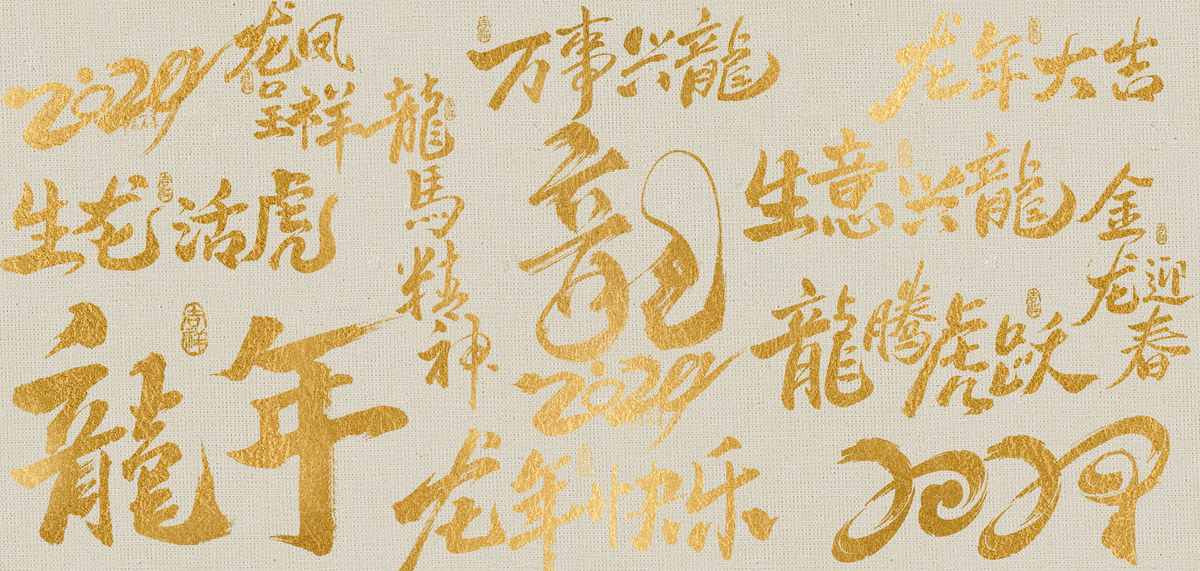 2024
龙凤
呈祥
万事兴龍
龙年大吉
生龙活虎
龍馬精神
龍
生意兴龍
金龙
迎春
龍年
吉祥
2024
龍腾虎跃
龙年快乐
2024